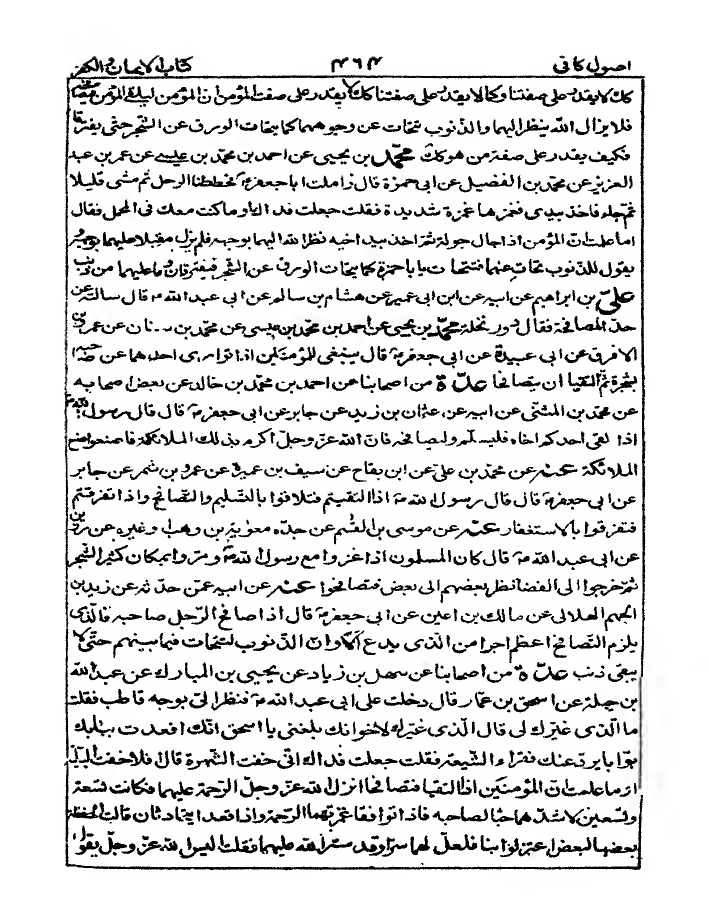 اصول كافى ٤٦٤ كتاب الايمان و الكفر
كك لا يقدر على صفتنا وكما لا يقدر على صفتنا كك لا يقدر على صفة المؤمن ان المؤمن ليلقى المؤمن فيصافحه
فلا يزال الله ينظر اليهما والذنوب تتحات عن وجوههما كما يتحات الورق عن الشجر حتى يفترقا
فكيف يقدر على صفة من هو كك محمد بن يحيى عن احمد بن محمد بن عيسى عن عمر بن عبد
العزيز عن محمد بن الفضيل عن ابى حمزة قال زاملت ابا جعفر ع فحططنا الرحل ثم مشى قليلا
ثم جاء فاخذ بيدى فغمزها غمزة شديدة فقلت جعلت فداك او ما كنت معك فى المحمل فقال
اما علمت ان المؤمن اذا جال جولة ثم اخذ بيد اخيه نظر الله اليهما بوجهه فلم يزل مقبلا عليهما بوجهه و
يقول للذنوب تحات عنهما فتتحات يا با حمزة كما يتحات الورق عن الشجر فيفترقان وما عليهما من ذنب
على بن ابراهيم عن ابيه عن ابن ابى عمير عن هشام بن سالم عن ابى عبد الله ع قال سالته عن
حد المصافحة فقال دور نخلة محمد بن يحيى عن احمد بن محمد بن عيسى عن محمد بن سنان عن عمرو بن
الافرق عن ابى عبيدة عن ابى جعفر ع قال ينبغى للمؤمنين اذا توارى احدهما عن صاحبه
بشجرة ثم التقيا ان يتصافحا عدة من اصحابنا عن احمد بن محمد بن خالد عن بعض اصحابه
عن محمد بن المثنى عن ابيه عن عثمان بن زيد عن جابر عن ابى جعفر ع قال قال رسول الله ص
اذا لقى احدكم اخاه فليسلم وليصافحه فان الله عز وجل اكرم بذلك الملائكة فاصنعوا صنع
الملائكة عنه عن محمد بن على عن ابن بقاح عن سيف بن عميرة عن عمرو بن شمر عن جابر
عن ابى جعفر ع قال قال رسول الله ص اذا التقيتم فتلاقوا بالتسليم والتصافح واذا تفرقتم
فتفرقوا بالاستغفار عنه عن موسى بن القسم عن جده معوية بن وهب او غيره عن رزين
عن ابى عبد الله ع قال كان المسلمون اذا غزوا مع رسول الله ص ومروا بمكان كثير الشجر
ثم خرجوا الى الفضا نظر بعضهم الى بعض فتصافحوا عنه عن ابيه عمن حدثه عن زيد بن
الجهم الهلالى عن مالك بن اعين عن ابى جعفر ع قال اذا صافح الرجل صاحبه فالذى
يلزم التصافح اعظم اجرا من الذى يدع الا وان الذنوب لتتحات فيما بينهم حتى لا
يبقى ذنب عدة من اصحابنا عن سهل بن زياد عن يحيى بن المبارك عن عبد الله
بن جبلة عن اسحق بن عمار قال دخلت على ابى عبد الله ع فنظر الى بوجه قاطب فقلت
ما الذى غيرك لى قال الذى غيرك لاخوانك بلغنى يا اسحق انك اقعدت ببابك
بوابا يرد عنك فقراء الشيعة فقلت جعلت فداك انى خفت الشهرة قال فلا خفت البلية
او ما علمت ان المؤمنين اذا التقيا فتصافحا انزل الله عز وجل الرحمة عليهما فكانت تسعة
وتسعين لاشدهما حبا لصاحبه فاذا توافقا غمرتهما الرحمة واذا قعدا يتحادثان قالت الحفظة
بعضها لبعض اعتزلوا بنا فلعل لهما سرا وقد ستر الله عليهما فقلت اليس الله عز وجل يقول